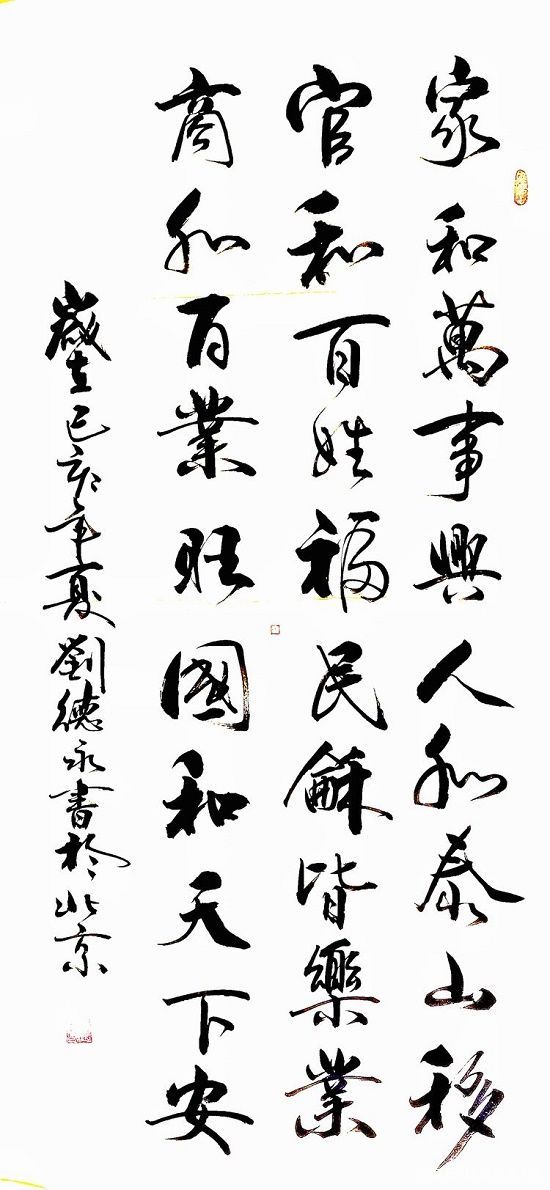 家和萬事興人和泰山移
官和百姓福民龢皆樂業
商和百業旺國和天下安
歲在己亥年夏劉德永書於北京